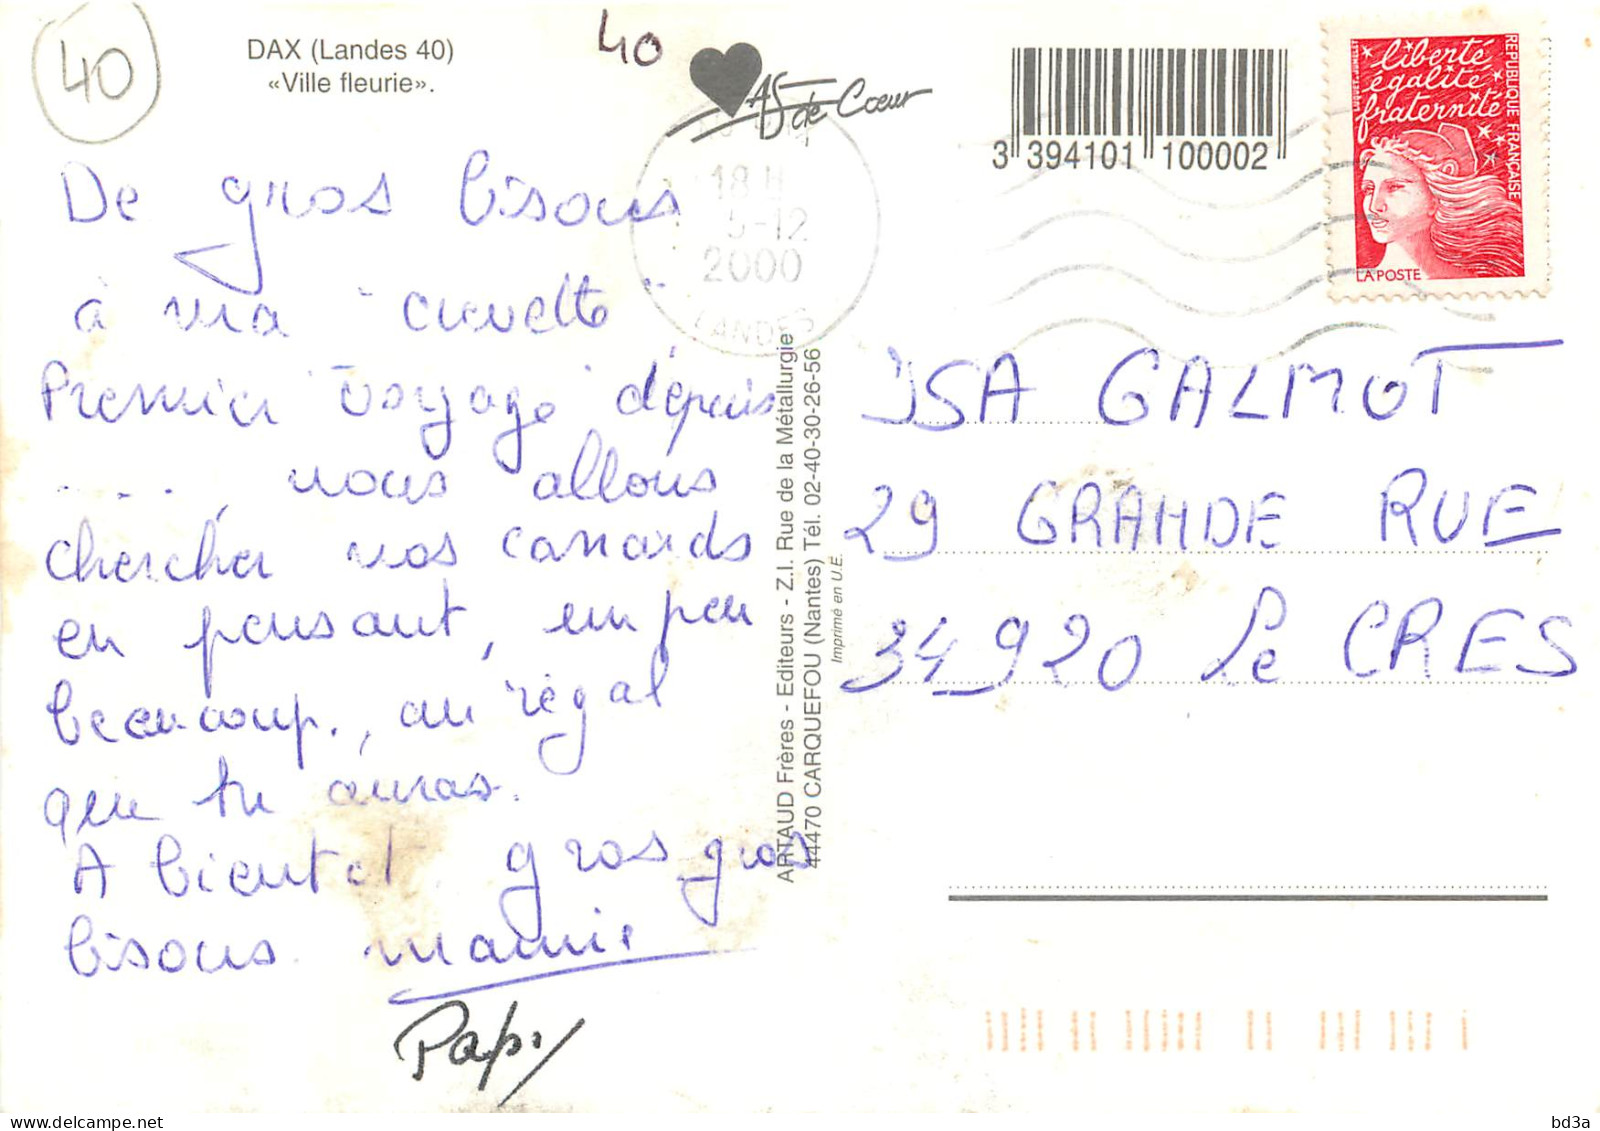 40
DAX (Landes 40)
«Ville fleurie».
40
As de Coeur
3 394101 100002
liberté
égalité
fraternité
REPUBLIQUE FRANÇAISE
LA POSTE
18 H
5-12
2000
LANDES
De gros bisous
à ma "crevette"
Premier voyage depuis
...., nous allons
chercher nos canards
en pensant, un peu
beaucoup., au régal
que tu auras.
A bientot gros gros
bisous mamie
Papy
ARTAUD Frères - Editeurs - Z.I. Rue de la Métallurgie
44470 CARQUEFOU (Nantes) Tél. 02-40-30-26-56
Imprimé en U.E.
ISA GALMOT
29 GRANDE RUE
34920 Le CRES
delcampe.net
bd3a